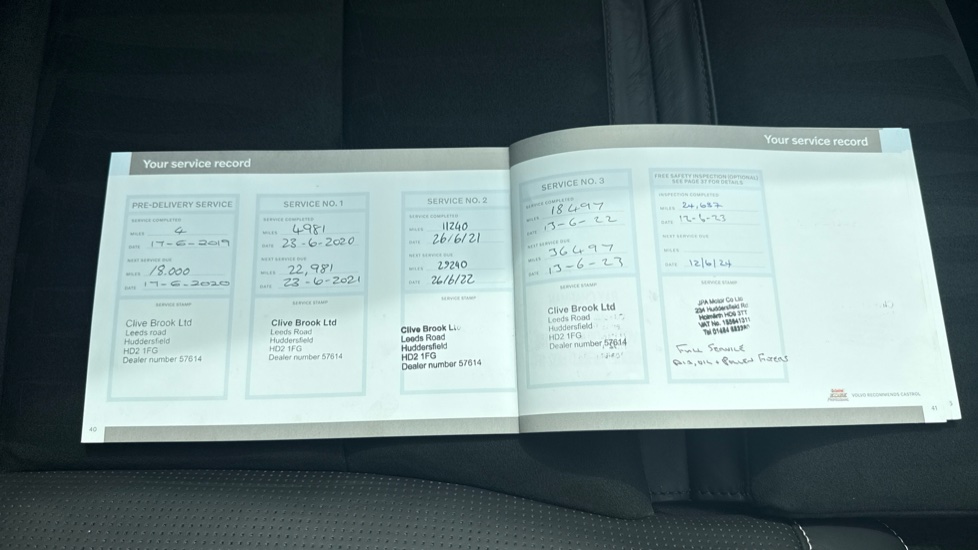 Your service record
PRE-DELIVERY SERVICE
SERVICE COMPLETED
MILES 4
DATE 17-6-2019
NEXT SERVICE DUE
MILES 18.000
DATE 17-6-2020
SERVICE STAMP
Clive Brook Ltd
Leeds road
Huddersfield
HD2 1FG
Dealer number 57614
SERVICE NO. 1
SERVICE COMPLETED
MILES 4981
DATE 23-6-2020
NEXT SERVICE DUE
MILES 22,981
DATE 23-6-2021
SERVICE STAMP
Clive Brook Ltd
Leeds Road
Huddersfield
HD2 1FG
Dealer number 57614
SERVICE NO. 2
SERVICE COMPLETED
MILES 11240
DATE 26/6/21
NEXT SERVICE DUE
MILES 29240
DATE 26/6/22
SERVICE STAMP
Clive Brook
Leeds Road
Huddersfield
HD2 1FG
Dealer number 57614
40
Your service record
SERVICE NO. 3
SERVICE COMPLETED
MILES 18497
DATE 13-6-22
NEXT SERVICE DUE
MILES 36497
DATE 13-6-23
SERVICE STAMP
Clive Brook Ltd
Leeds Road
Huddersfield
HD2 1FG
Dealer number 57614
FREE SAFETY INSPECTION (OPTIONAL)
SEE PAGE 37 FOR DETAILS
INSPECTION COMPLETED
MILES 24,687
DATE 12-6-23
NEXT SERVICE DUE
MILES
DATE 12/6/24
SERVICE STAMP
JPA Motor Co Ltd
Huddersfield Rd
Holmfirth HD9 3TT
VAT No.
Tel 01484
Full Service
Oil + Pollen Filters
VOLVO RECOMMENDS CASTROL
41